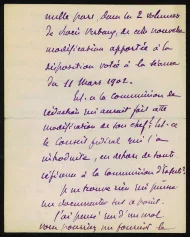 nulle part dans les 2 volumes
de choix Verbaux, de cette nouvelle
modification apportée à la
disposition votée à la séance
du 11 Mars 1902.
Est-ce la Commission de
rédaction qui aurait fait cette
modification de son chef? Est-ce
le Conseil fédéral qui l'a
introduite, en dehors de toute
référence à la Commission d'experts?
Je ne trouve rien qui puisse
me documenter sur ce point.
J'ai pensé qu'un mot
vous pourriez me fournir la